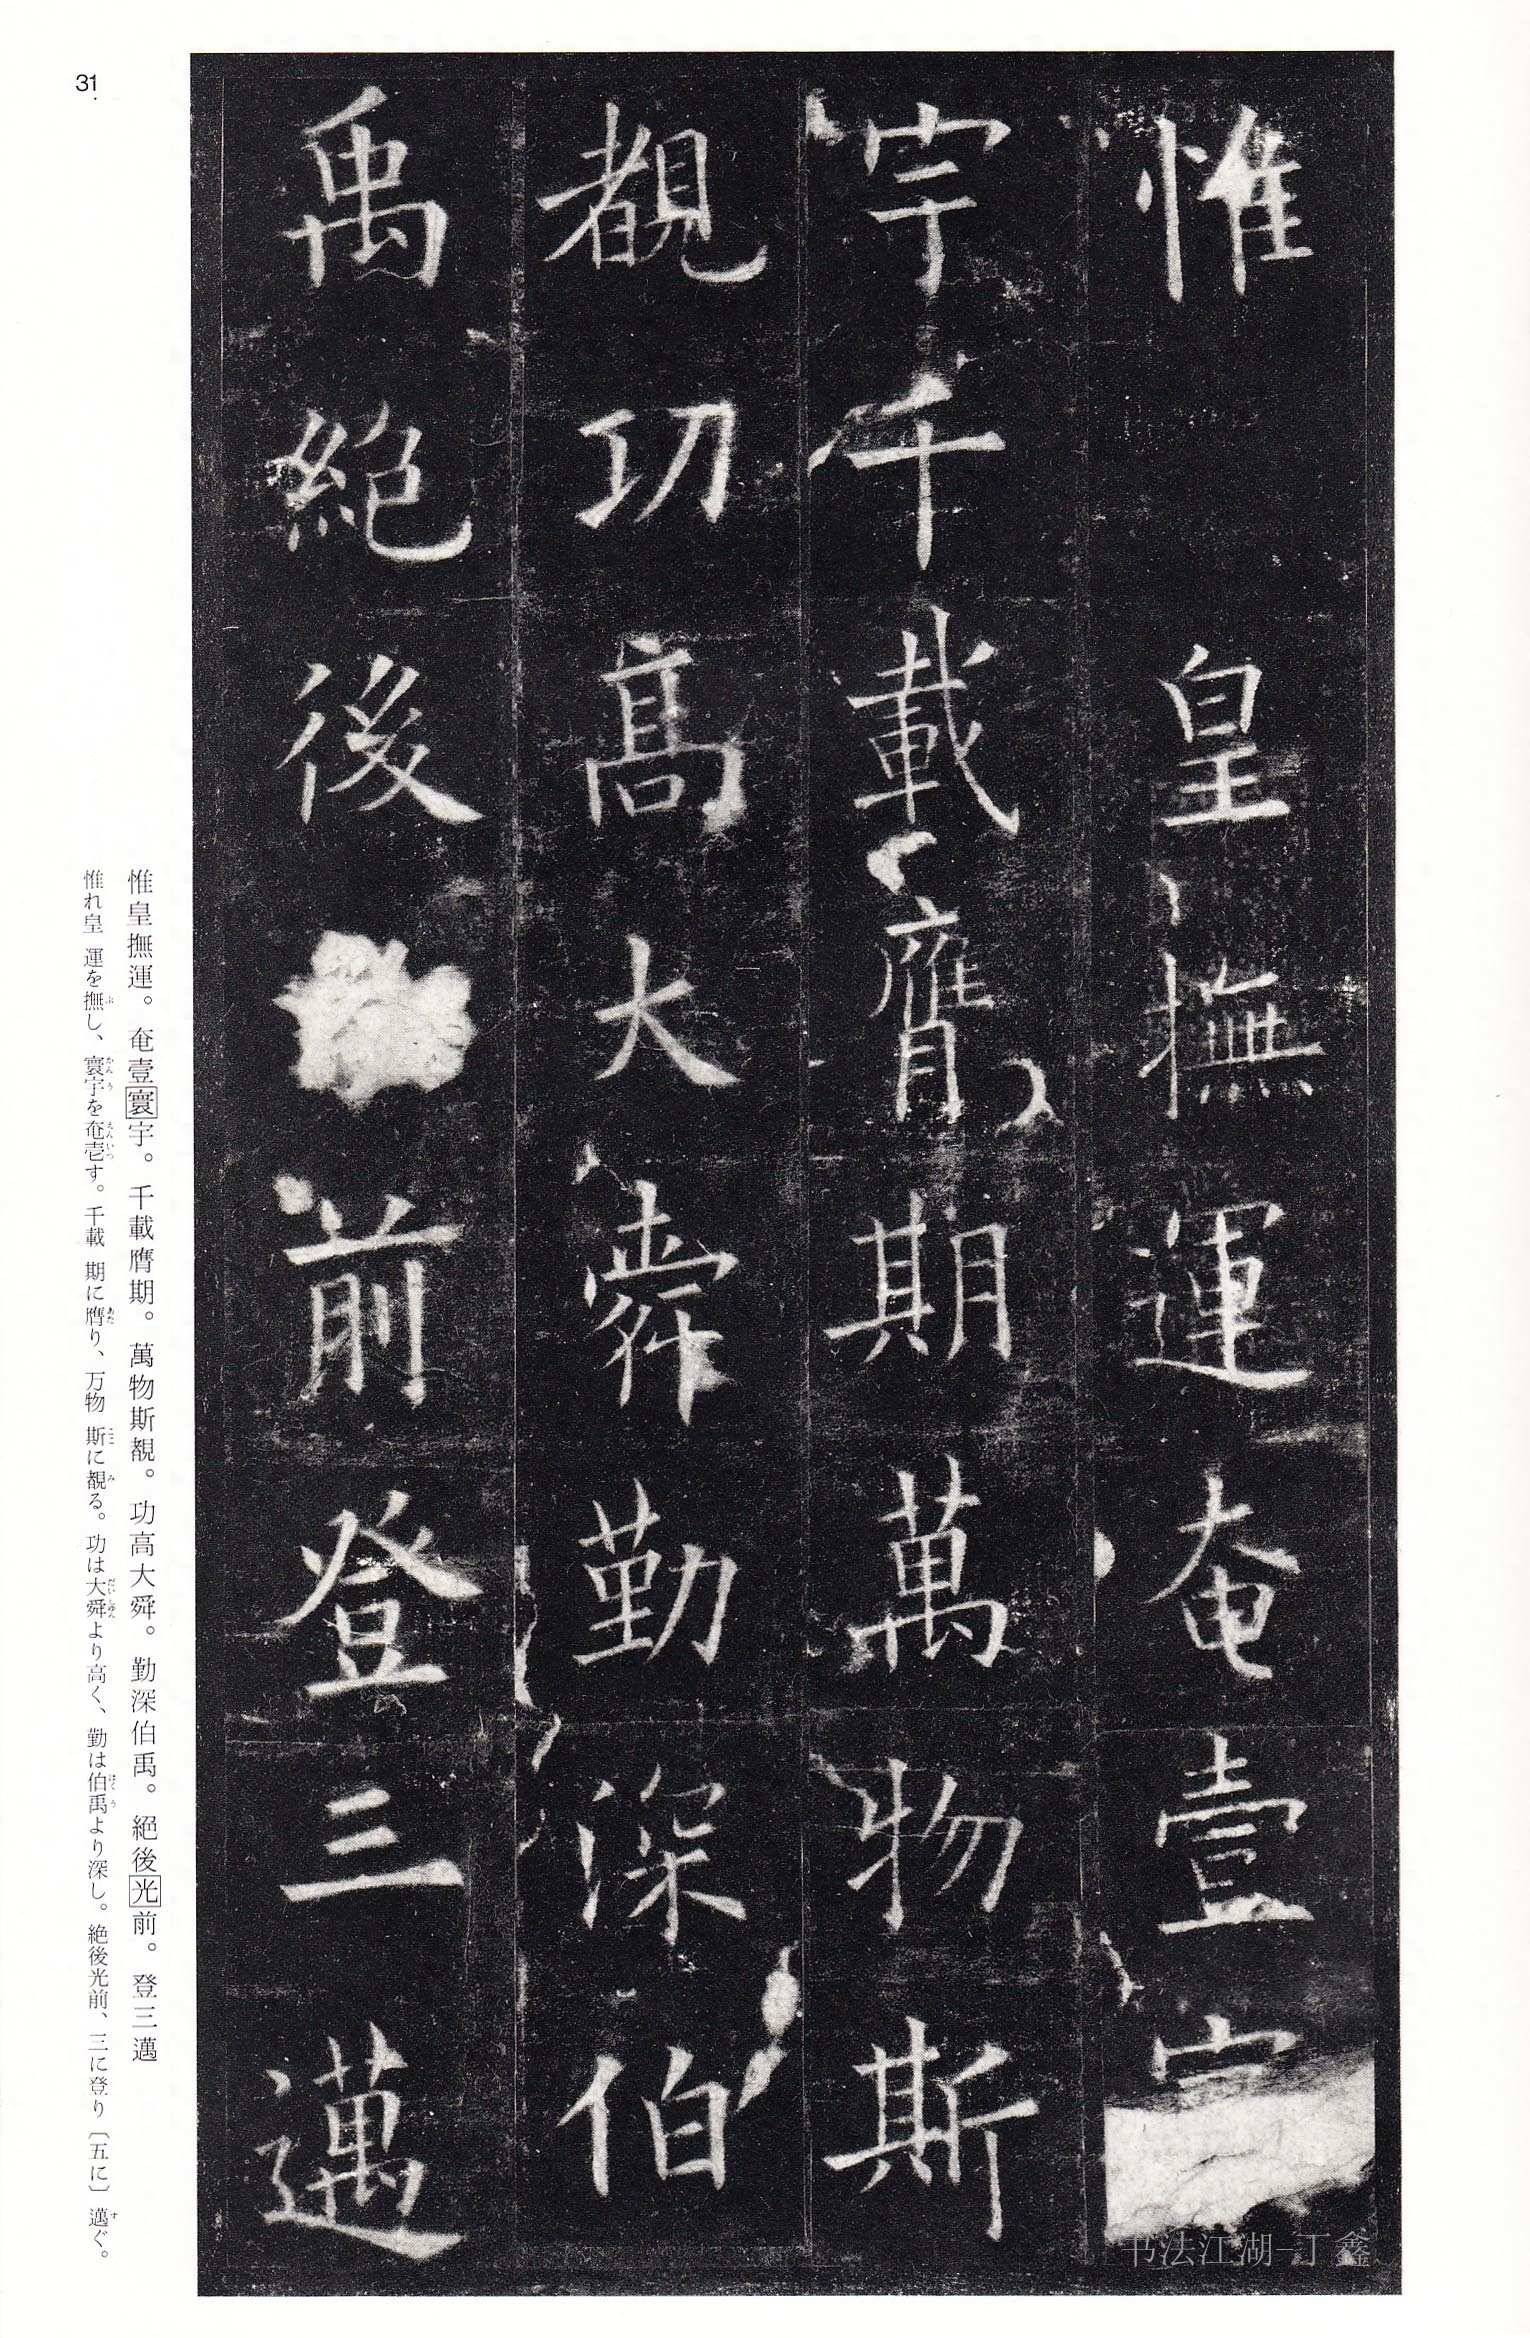 惟皇撫運奄壹
宇千載膺期萬物斯
覩功高大舜勤深伯
禹絕後前登三邁
惟皇撫運。奄壹寰宇。千載膺期。萬物斯覩。功高大舜。勤深伯禹。絕後光前。登三邁
惟れ皇 運を撫し、寰宇を奄壱す。千載 期に膺り、万物 斯に覩る。功は大舜より高く、勤は伯禹より深し。絶後光前、三に登り〔五に〕邁ぐ。
31
书法江湖-丁鑫